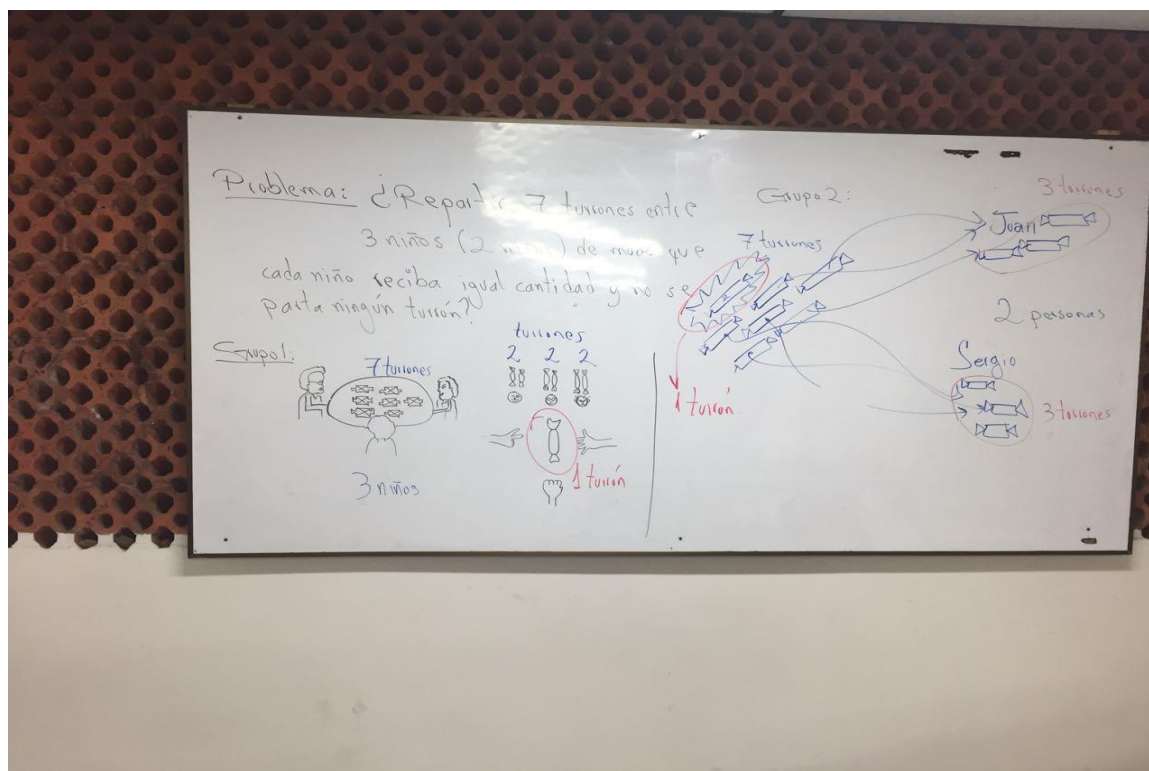 Problema: ¿Repartir 7 turrones entre
3 niños (2 niños) de modo que
cada niño reciba igual cantidad y no se
parta ningún turrón?
Grupo1:
7 turrones
3 niños
turrones
2 2 2
1 turrón
Grupo 2:
7 turrones
1 turrón
3 turrones
Juan
2 personas
Sergio
3 turrones